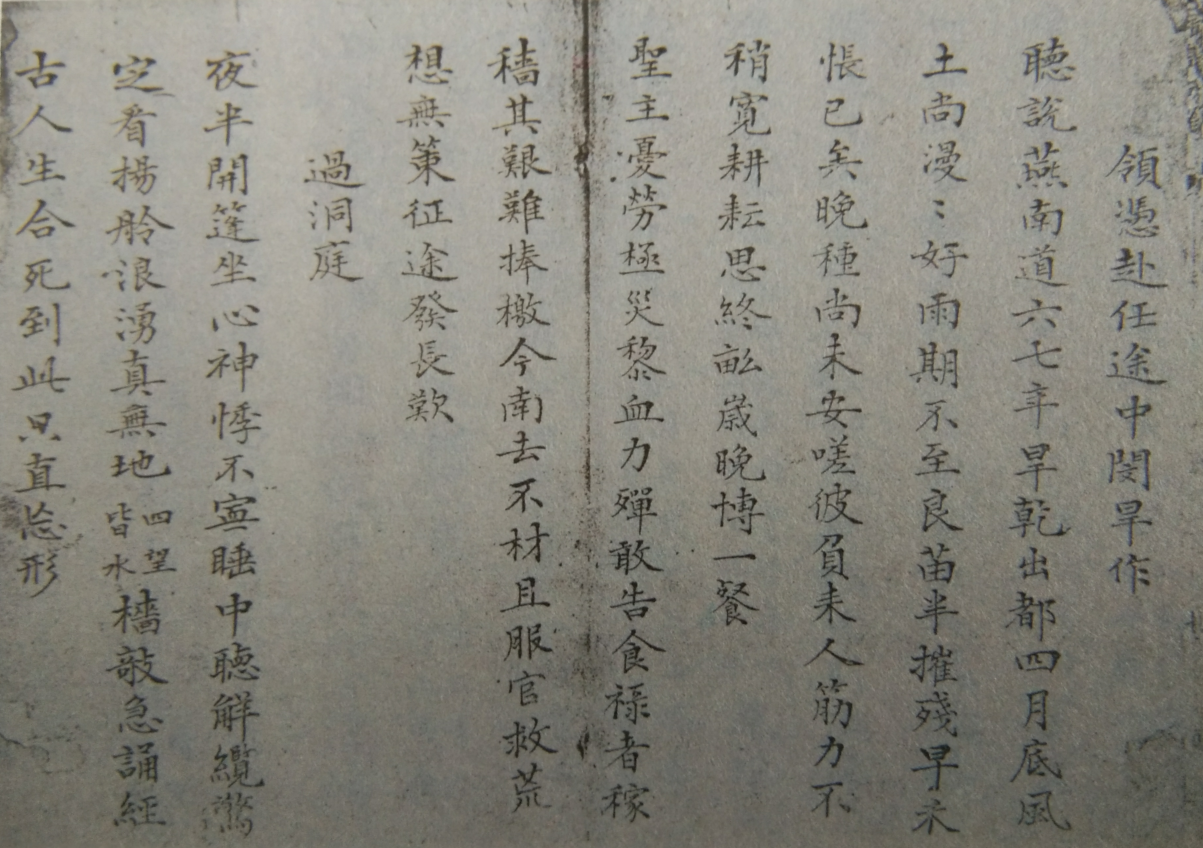 領憑赴任途中閔旱作
聽說燕南道六七年旱乾出都四月底風
土尚漫〻好雨期不至良苗半摧殘早禾
悵已矣晚種尚未安嗟彼負耒人筋力不
稍寬耕耘思終畝歲晚博一餐
聖主憂勞極災黎血力殫敢告食祿者稼
穡其艱難捧檄今南去不材且服官救荒
想無策征途發長歎
過洞庭
夜半開篷坐心神悸不寧睡中聽解纜驚
定看揚舲浪湧真無地四望皆水檣敲急誦經
古人生合死到此只直忘形